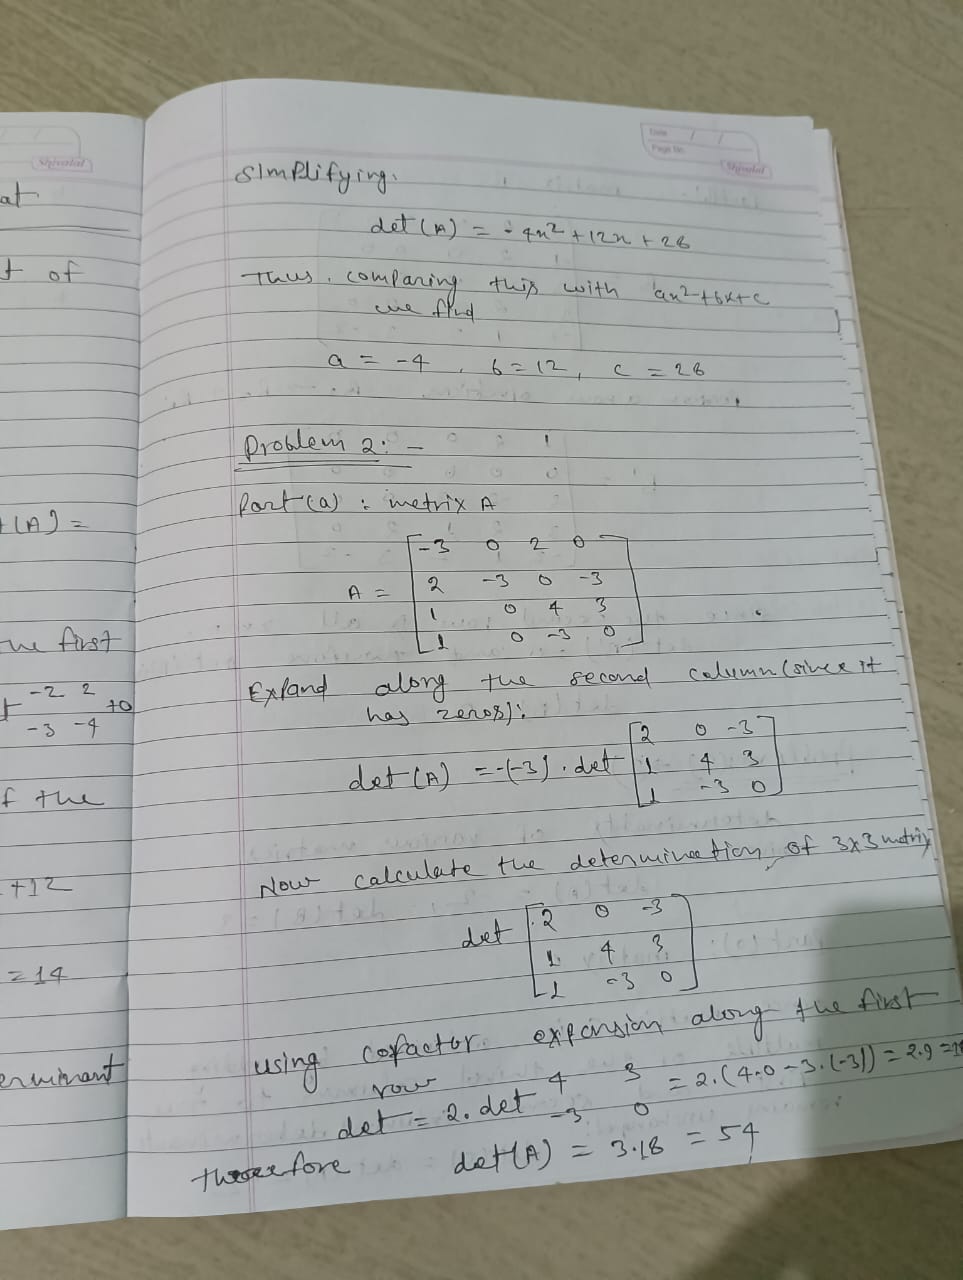 Shivalal
at
t of
t(A) =
the first
-2 2
t to
-3 -4
f the
+12
= 14
erminant
Date / /
Page No.
Shivalal
Simplifying:
det (A) = -4x² + 12x + 28
Thus, comparing this with ax²+bx+c
we find
a = -4 , b = 12, c = 28
Problem 2: -
Part (a) : metrix A
-3 0 2 0
A = 2 -3 0 -3
1 0 4 3
1 0 -3 0
Expand along the second column (since it
has zeros):
2 0 -3
det (A) = -(-3) . det 1 4 3
1 -3 0
Now calculate the determination of 3x3 metrix
2 0 -3
det 1 4 3
1 -3 0
using cofactor expansion along the first
row
det = 2. det 4 3 = 2.(4.0 - 3.(-3)) = 2.9 = 18
-3 0
therefore det (A) = 3.18 = 54